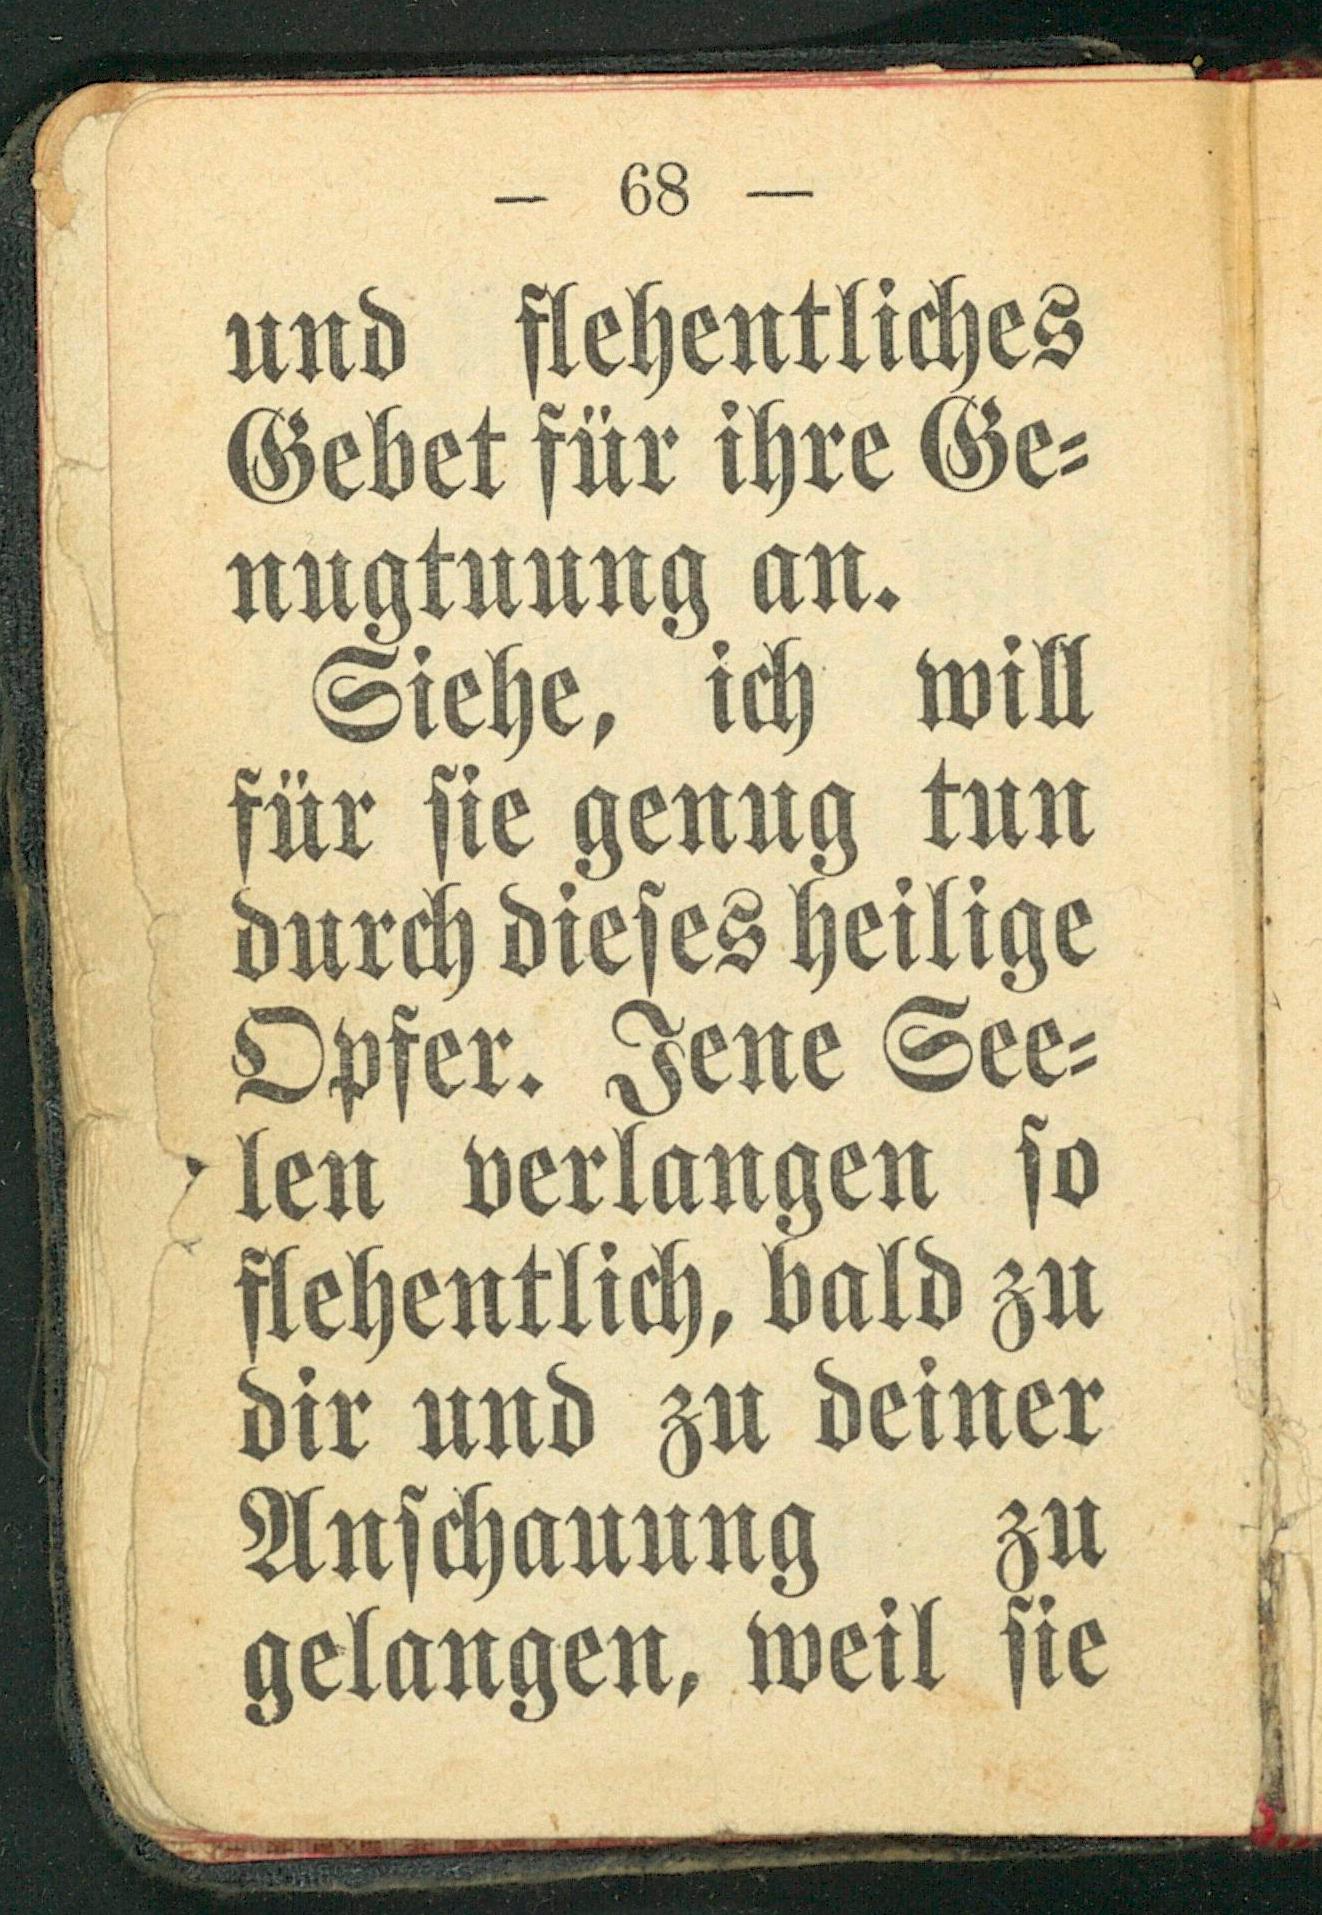 — 68 —
und flehentliches
Gebet für ihre Ge=
nugtuung an.
Siehe, ich will
für sie genug tun
durch dieses heilige
Opfer. Jene See=
len verlangen so
flehentlich, bald zu
dir und zu deiner
Anschauung zu
gelangen, weil sie